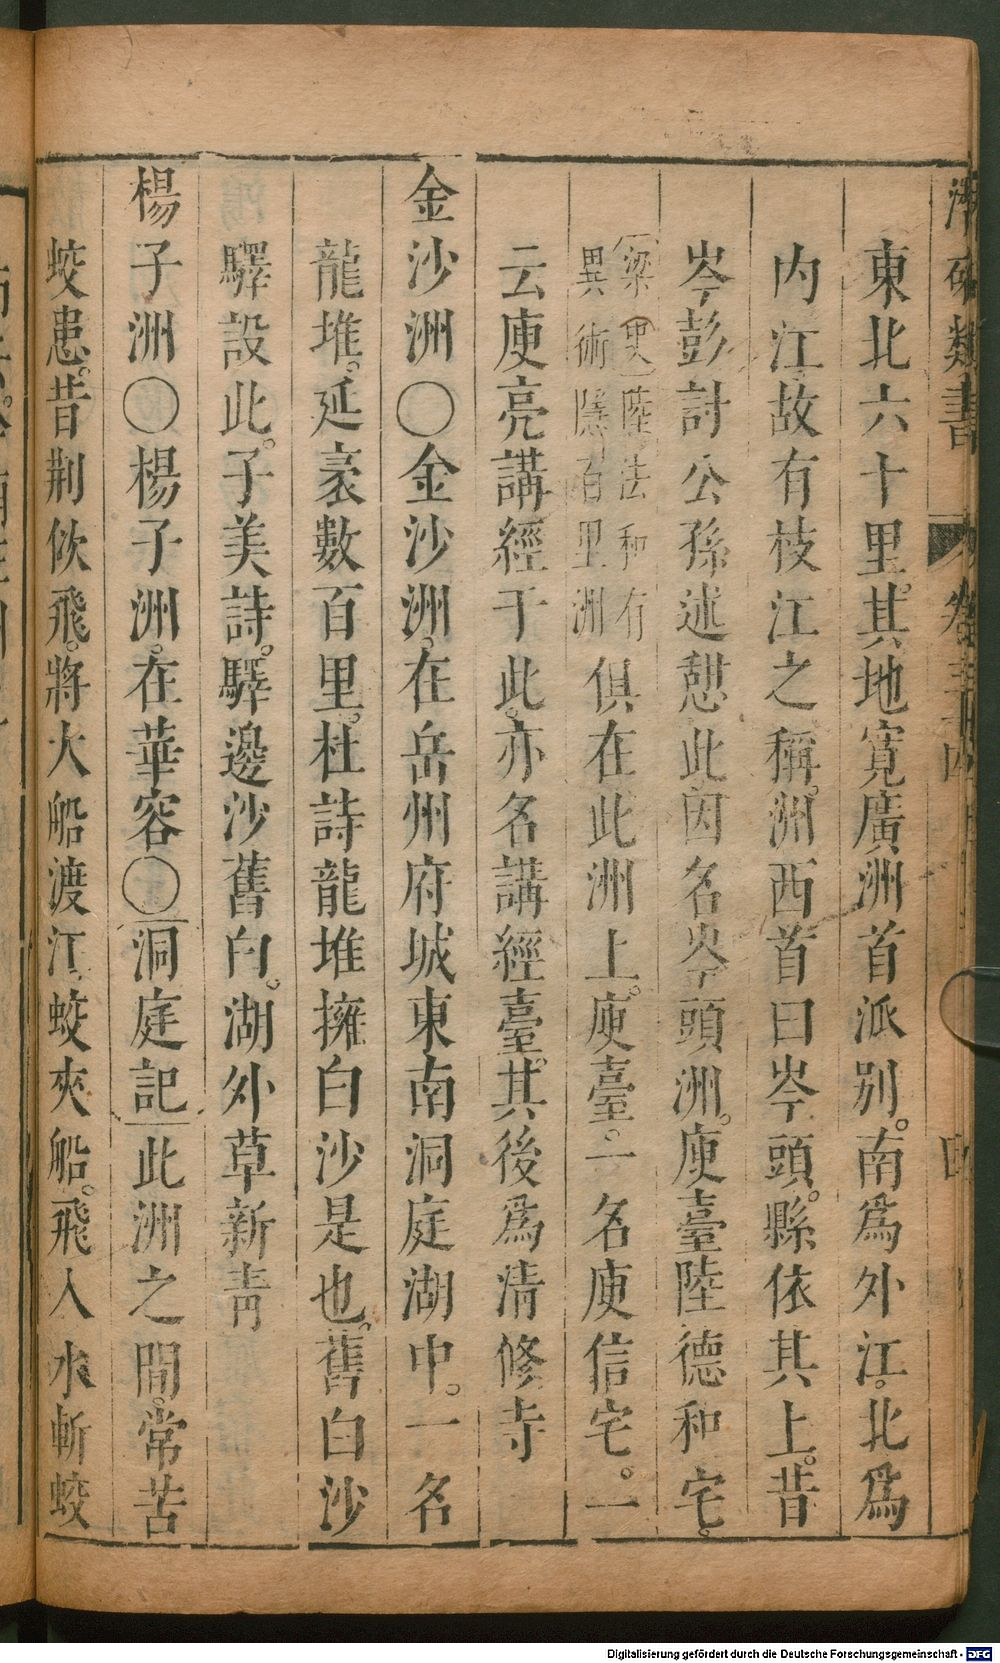 東北六十里。其地寬廣洲首派别。南爲外江。北爲
内江故有枝江之稱。洲西首曰岑頭。縣依其上。昔
岑彭討公孫述憩此因名岑頭洲。庾臺陸德和宅。
梁史陸法和有
異術隱百里洲
俱在此洲上。庾臺。一名庾信宅。一
云庾亮講經于此。亦名講經臺。其後爲清修寺
金沙洲〇金沙洲。在岳州府城東南洞庭湖中。一名
龍堆。延袤數百里。杜詩龍堆擁白沙是也。舊白沙
驛設此。子美詩。驛邊沙舊白。湖外草新青
楊子洲〇楊子洲。在華容〇洞庭記此洲之間。常苦
蛟患。昔荆佽飛。將大船渡江。蛟夾船。飛入水斬蛟
類書
卷
Digitalisierung gefördert durch die Deutsche Forschungsgemeinschaft - DFG